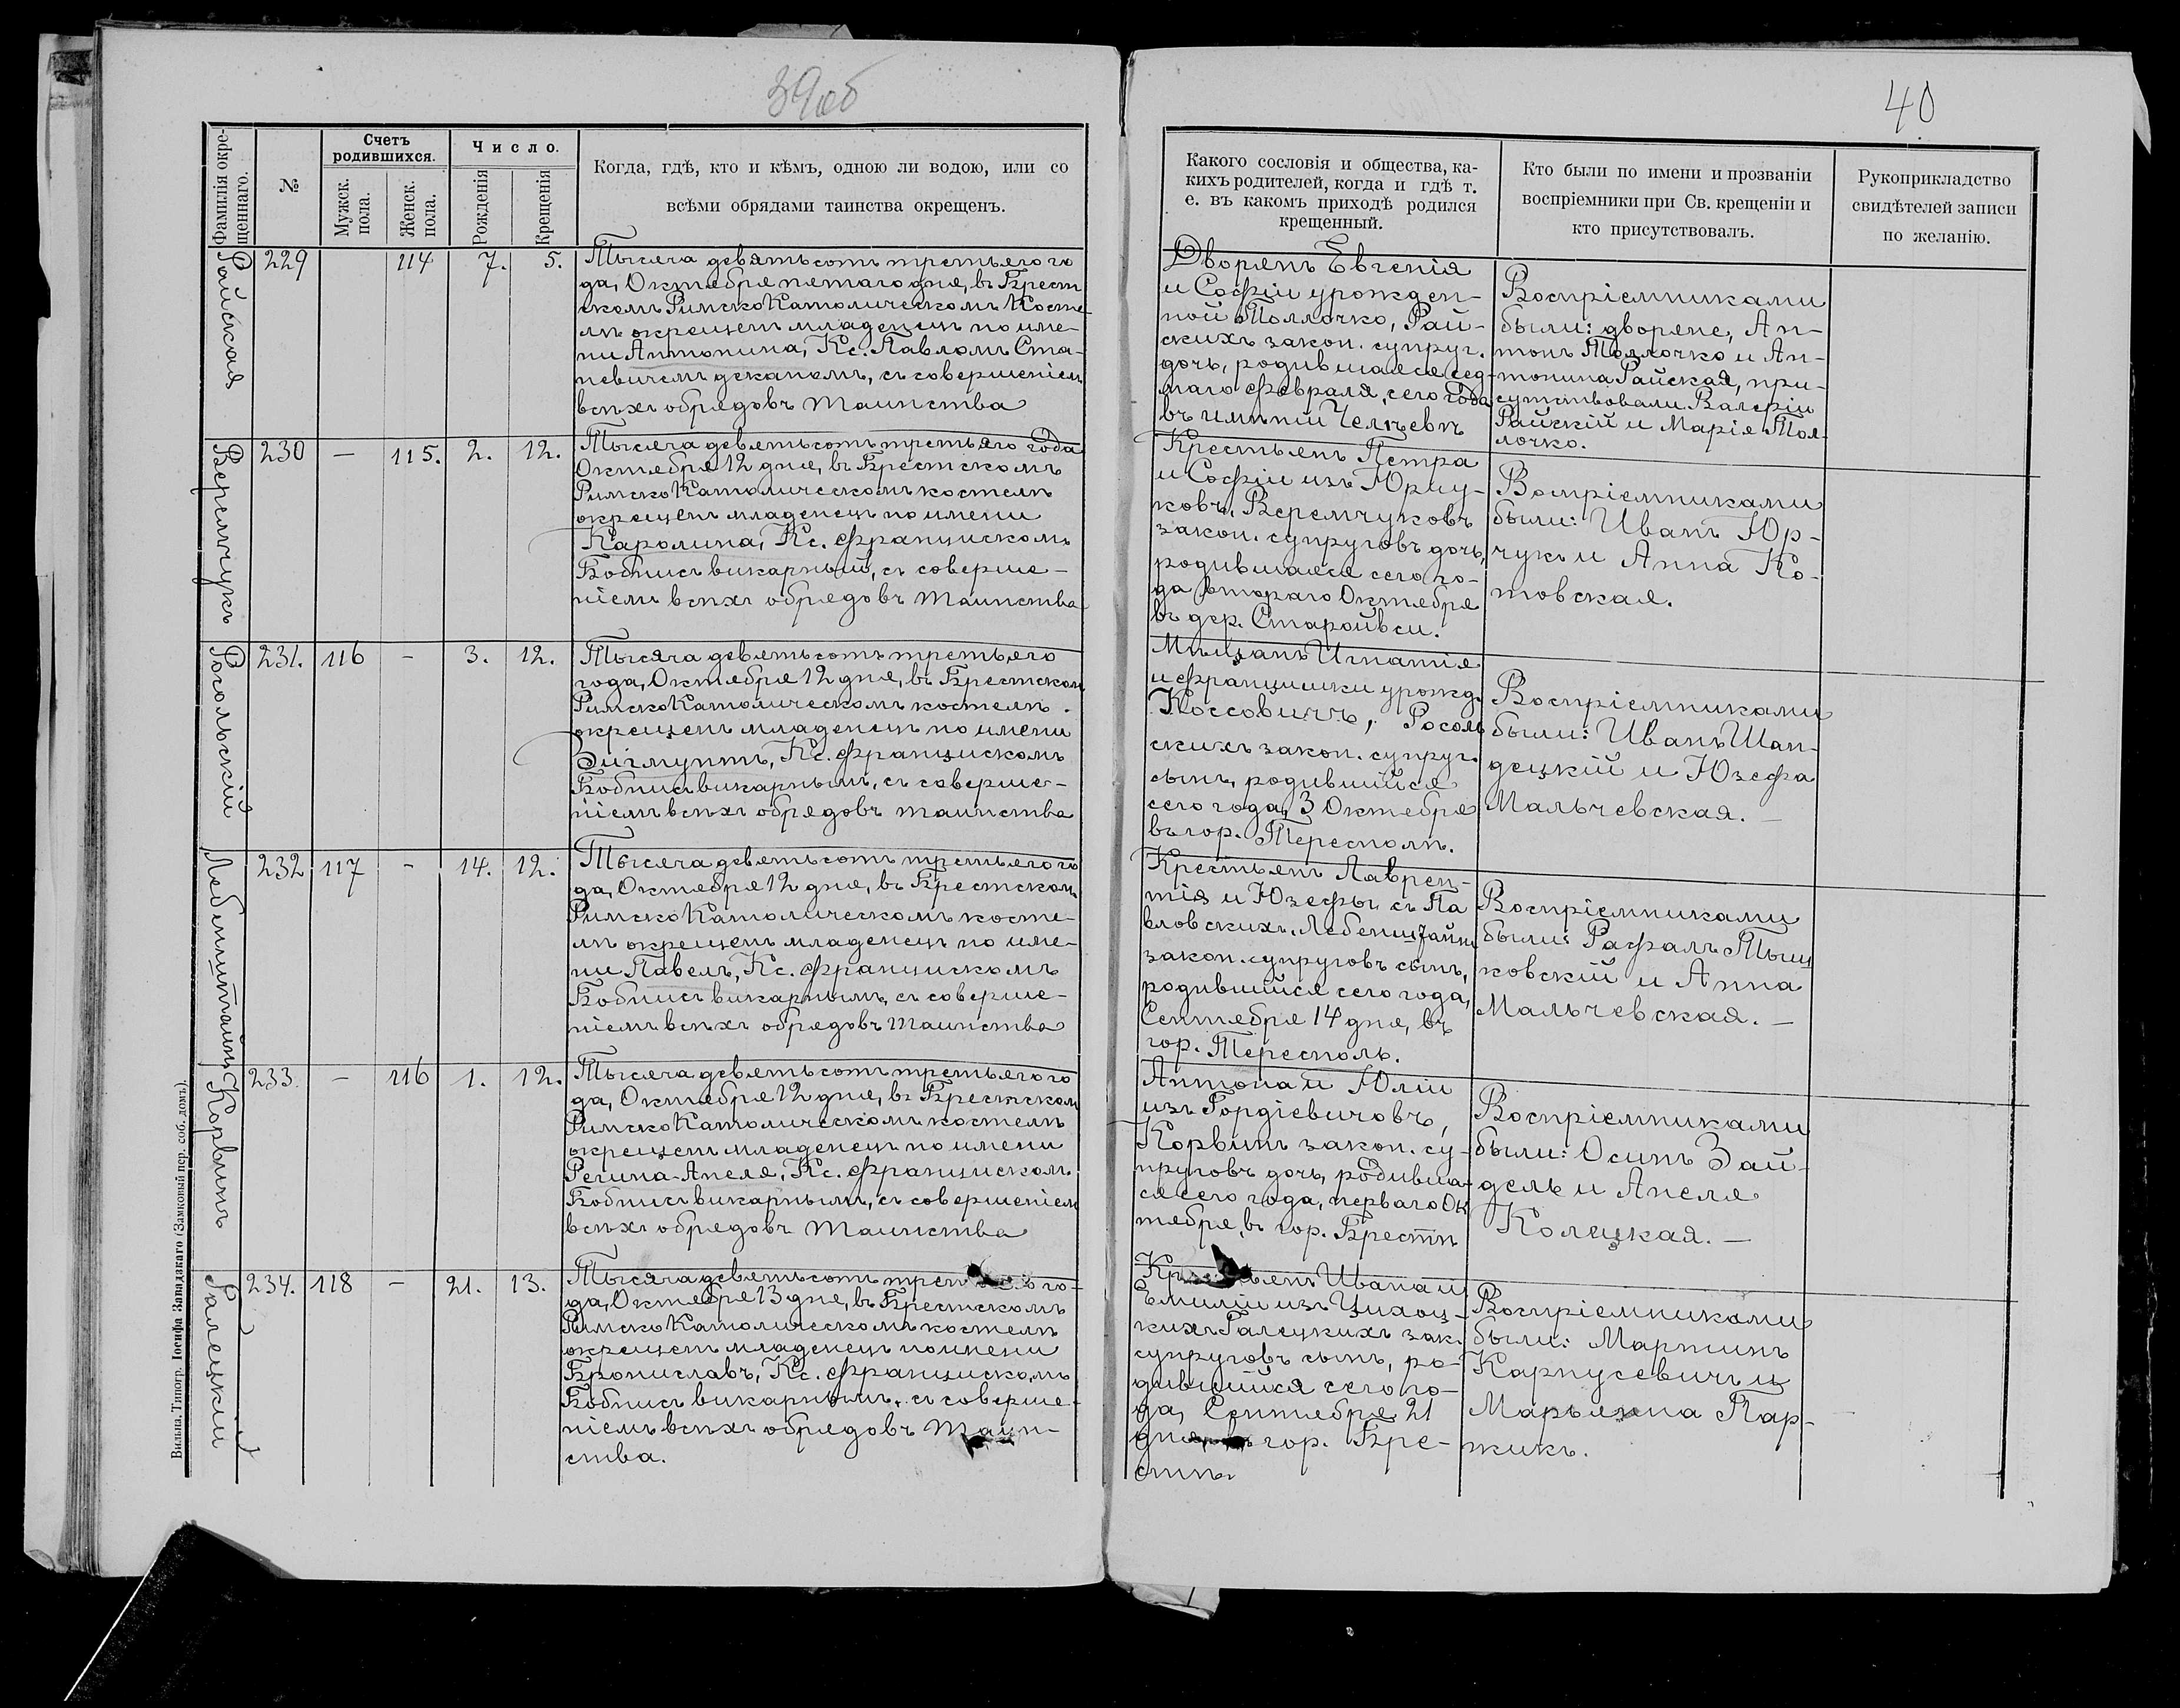 39об
40
Фамилія окре-
щеннаго.
№
Счетъ
родившихся.
Мужск.
пола.
Женск.
пола.
Число.
Рожденія
Крещенія
Когда, гдѣ, кто и кѣмъ, одною ли водою, или со
всѣми обрядами таинства окрещенъ.
Какого сословія и общества, ка-
кихъ родителей, когда и гдѣ т.
е. въ какомъ приходѣ родился
крещенный.
Кто были по имени и прозваніи
воспріемники при Св. крещеніи и
кто присутствовалъ.
Рукоприкладство
свидѣтелей записи
по желанію.
Райская
229
114
7.
5.
Тысяча девятьсотъ третьяго го
да, Октября пятаго дня, въ Брест
скомъ РимскоКатолическомъ Косте-
лѣ окрещенъ младенецъ по име-
ни Антонина, Кс. Павломъ Ста-
невичемъ деканомъ, съ совершеніемъ
всѣхъ обрядовъ таинства
Дворянъ Евгенія
и Софіи урожден-
ной Толлочко, Рай-
скихъ закон. супруг.
дочь, родившаяся сед-
маго февраля, сего года
въ имѣніи Челѣевѣ
Воспріемниками
были: дворяне, Ан-
тонъ Толлочко и Ан-
тонина Райская, при-
сутствовали Валерій
Райскій и Марія Тол-
лочко.
Веремчукъ
230
—
115.
2.
12.
Тысяча девятьсотъ третьяго года
Октября 12 дня, въ Брестскомъ
РимскоКатолическомъ костелѣ
окрещенъ младенецъ по имени
Каролина, Кс. Францискомъ
Бобнисъ викарный, съ соверше-
ніемъ всѣхъ обрядовъ таинства
Крестьянъ Петра
и Софіи изъ Юрчу-
ковъ, Веремчуковъ
закон. супруговъ дочь,
родившаяся сего го-
да втораго Октября
въ дер. Старойвси.
Воспріемниками
были: Иванъ Юр-
чукъ и Анна Ко-
товская.
Росольскій
231.
116
-
3.
12.
Тысяча девятьсотъ третьяго
года, Октября 12 дня, въ Брестскомъ
РимскоКатолическомъ костелѣ
окрещенъ младенецъ по имени
Зигмунтъ, Кс. Францискомъ
Бобнисъ викарнымъ, съ соверше-
ніемъ всѣхъ обрядовъ таинства
Мѣщанъ Игнатія
и Францишки урожд.
Коссовичъ, Росоль
скихъ закон. супруг.
сынъ, родившійся
сего года, 3 Октября
въ гор. Тересполѣ.
Воспріемниками
были: Иванъ Шан-
децкій и Юзефа
Мальчевская. —
232
117
-
14.
12.
Тысяча девятьсотъ третьяго го
да, Октября 12 дня, въ Брестскомъ
РимскоКатолическомъ косте-
лѣ окрещенъ младенецъ по име-
ни Павелъ, Кс. Францискомъ
Бобнисъ викарнымъ, съ соверше-
ніемъ всѣхъ обрядовъ таинства
Крестьянъ Лаврен-
тія и Юзефы съ Па
вловскихъ,
закон. супруговъ сынъ,
родившійся сего года,
Сентября 14 дня, въ
гор. Тересполь.
Воспріемниками
были: Рафалъ Тыш
ковскій и Анна
Мальчевская. —
Корвинъ
233.
—
116
1.
12.
Тысяча девятьсотъ третьяго го
да, Октября 12 дня, въ Брестскомъ
РимскоКатолическомъ костелѣ
окрещенъ младенецъ по имени
Регина-Анеля, Кс. Францискомъ
Бобнисъ викарнымъ, съ совершеніемъ
всѣхъ обрядовъ таинства
Антона и Юліи
изъ Гордіевичовъ,
Корвинъ закон. су-
пруговъ дочь, родивша-
яся сего года, перваго Ок
тября, въ гор. Брестѣ
Воспріемниками
были: Осипъ Зай-
дель и Анеля
Колецкая. —
Галецкій
234.
118
-
21.
13.
Тысяча девятьсотъ го-
да, Октября 13 дня, въ Брестскомъ
РимскоКатолическомъ костелѣ
окрещенъ младенецъ по имени
Брониславъ, Кс. Францискомъ
Бобнисъ викарнымъ, съ соверше-
ніемъ всѣхъ обрядовъ Таин-
ства.
Крестьянъ Ивана и
Емиліи изъ Цихоц-
кихъ Галецкихъ зак.
супруговъ сынъ, ро-
дившійся сего го-
да, Сентября 21
дня, въ гор. Бре-
стѣ.
Воспріемниками
были: Мартинъ
Карпусевичъ и
Марьянна Пар-
жикъ.
Вильна. Типогр. Іосифа Завадзкаго (Замковый пер. соб. домъ).